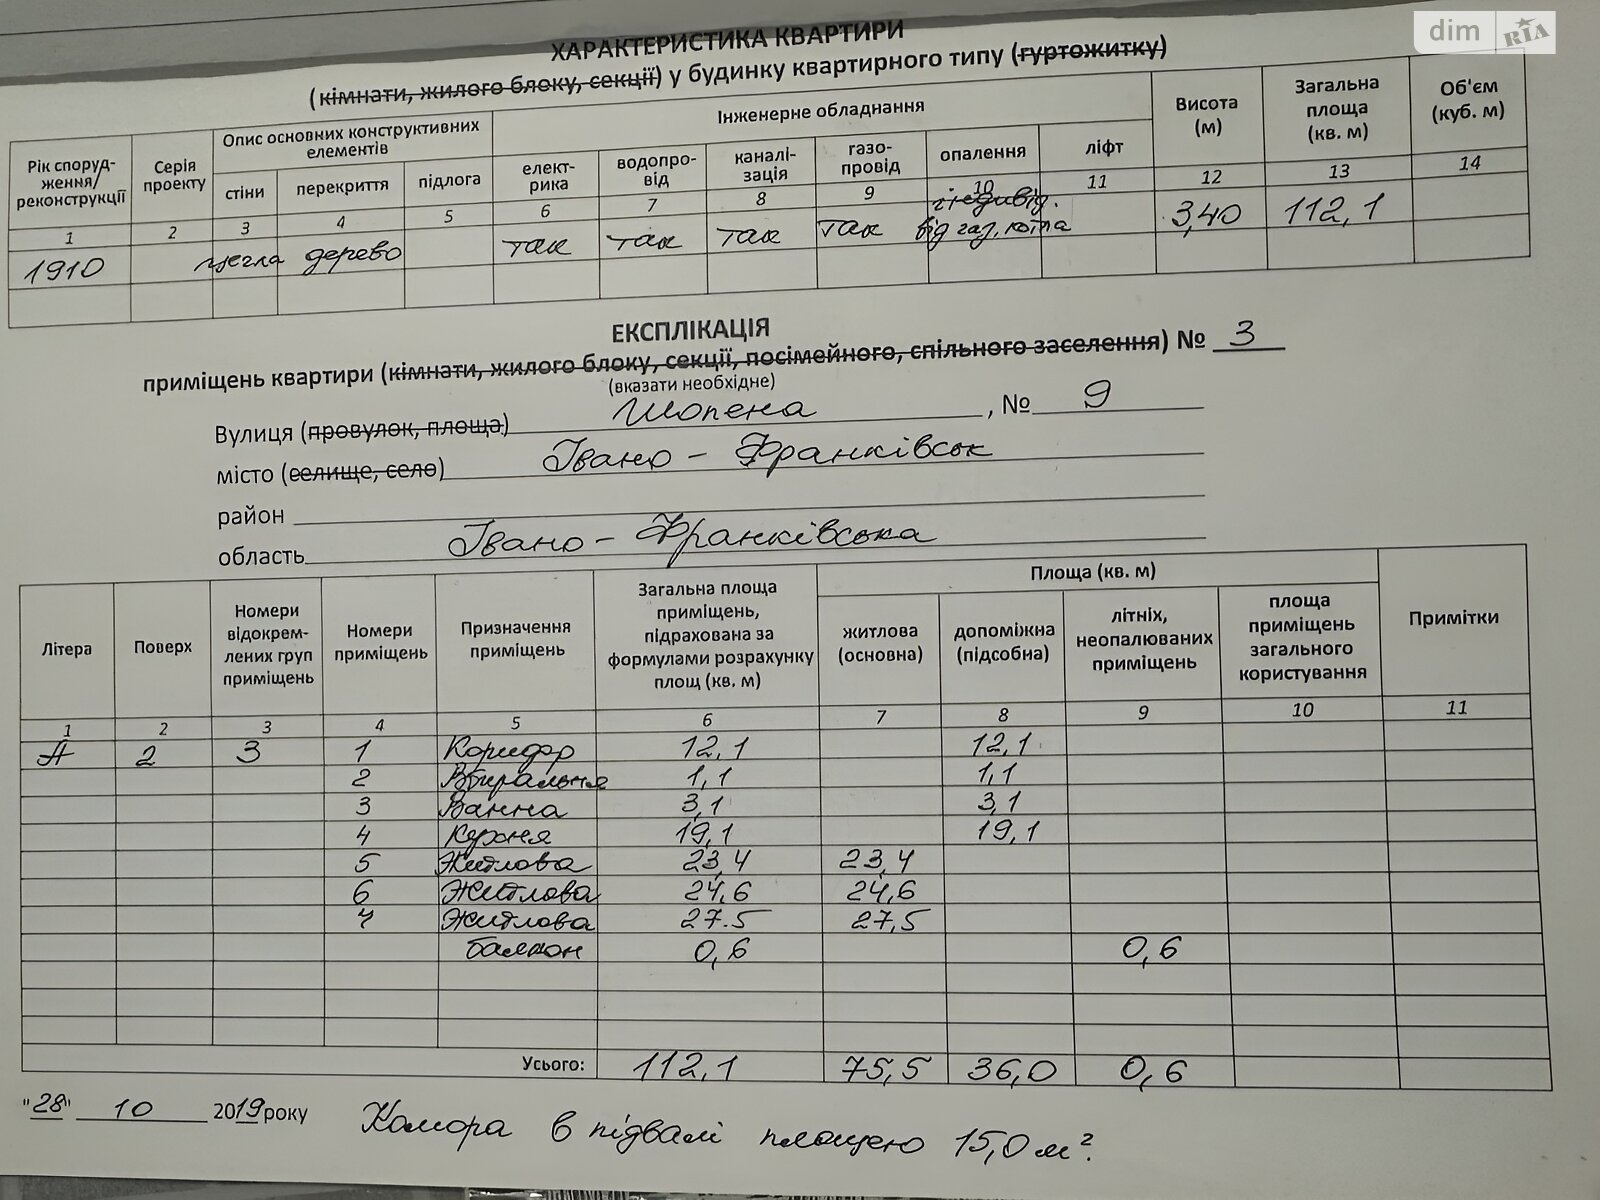 dim RIA
ХАРАКТЕРИСТИКА КВАРТИРИ
(кімнати, жилого блоку, секції) у будинку квартирного типу (гуртожитку)
Рік споруд-
ження/
реконструкції
Серія
проекту
Опис основних конструктивних
елементів
Інженерне обладнання
Висота
(м)
Загальна
площа
(кв. м)
Об'єм
(куб. м)
стіни перекриття підлога
елект-
рика
водопро-
від
каналі-
зація
газо-
провід
опалення
ліфт
1 2 3 4 5 6 7 8 9 10 11 12 13 14
1910 цегла дерево так так так так індивід. 3,40 112,1
від газ. котла
ЕКСПЛІКАЦІЯ
приміщень квартири (кімнати, жилого блоку, секції, посімейного, спільного заселення) № 3
(вказати необхідне)
Вулиця (провулок, площа) Шопена , № 9
місто (селище, село) Івано - Франківськ
район
область Івано - Франківська
Літера
Поверх
Номери
відокрем-
лених груп
приміщень
Номери
приміщень
Призначення
приміщень
Загальна площа
приміщень,
підрахована за
формулами розрахунку
площ (кв. м)
Площа (кв. м)
житлова
(основна)
допоміжна
(підсобна)
літніх,
неопалюваних
приміщень
площа
приміщень
загального
користування
Примітки
1 2 3 4 5 6 7 8 9 10 11
А 2 3 1 Коридор 12,1 12,1
2 Вбиральня 1,1 1,1
3 Ванна 3,1 3,1
4 Кухня 19,1 19,1
5 Житлова 23,4 23,4
6 Житлова 24,6 24,6
7 Житлова 27.5 27,5
балкон 0,6 0,6
Усього: 112,1 75,5 36,0 0,6
"28" 10 2019 року
Комора в підвалі площею 15,0 м².